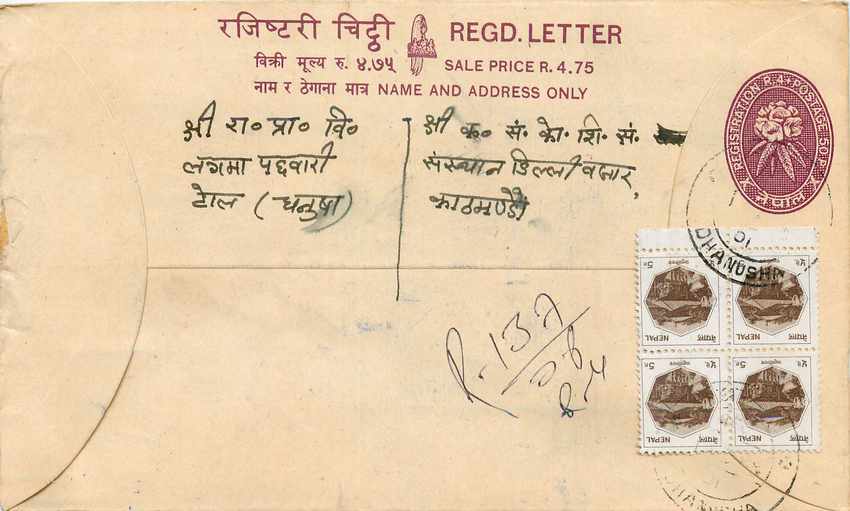 रजिष्टरी चिट्ठी REGD. LETTER
विक्री मूल्य रु. ४.७५ SALE PRICE R. 4.75
नाम र ठेगाना मात्र NAME AND ADDRESS ONLY
REGISTRATION R. & POSTAGE 50 P.
नेपाल
श्री रा० प्रा० वि०
लगमा पछवारी
टोल (धनुषा)
श्री क० सं. को. शि. सं.
संस्थान डिल्लीबजार,
काठमाण्डौ
DHANUSHA
01
R. 137
नेपाल NEPAL
नेपाल NEPAL
नेपाल NEPAL
नेपाल NEPAL
DHANUSHA